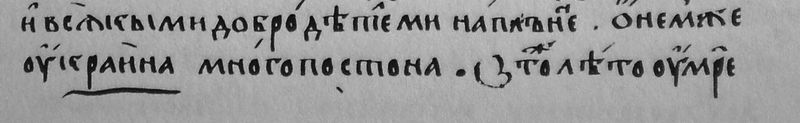 и҆ всѧкыми добродѣтелми напꙇъне҆ . ѡ҆ немже
ѹ҆краина многопостона . в҃ то лѣто ѹ҆мре